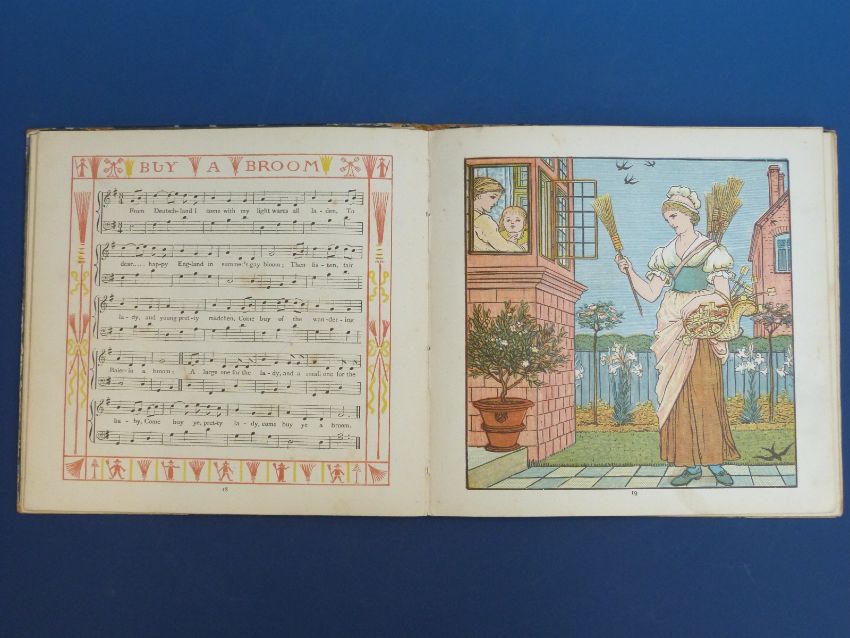 BUY A BROOM
From Deutsch-land I come with my light wares all la-den, To
dear.... hap-py Eng-land in summer's gay bloom; Then lis-ten, fair
la-dy, and young pret-ty mädchen, Come buy of the wan-der-ing
Baier-in a broom: A large one for the la-dy, and a small one for the
ba-by, Come buy ye, pret-ty la-dy, come buy ye a broom.
18
19